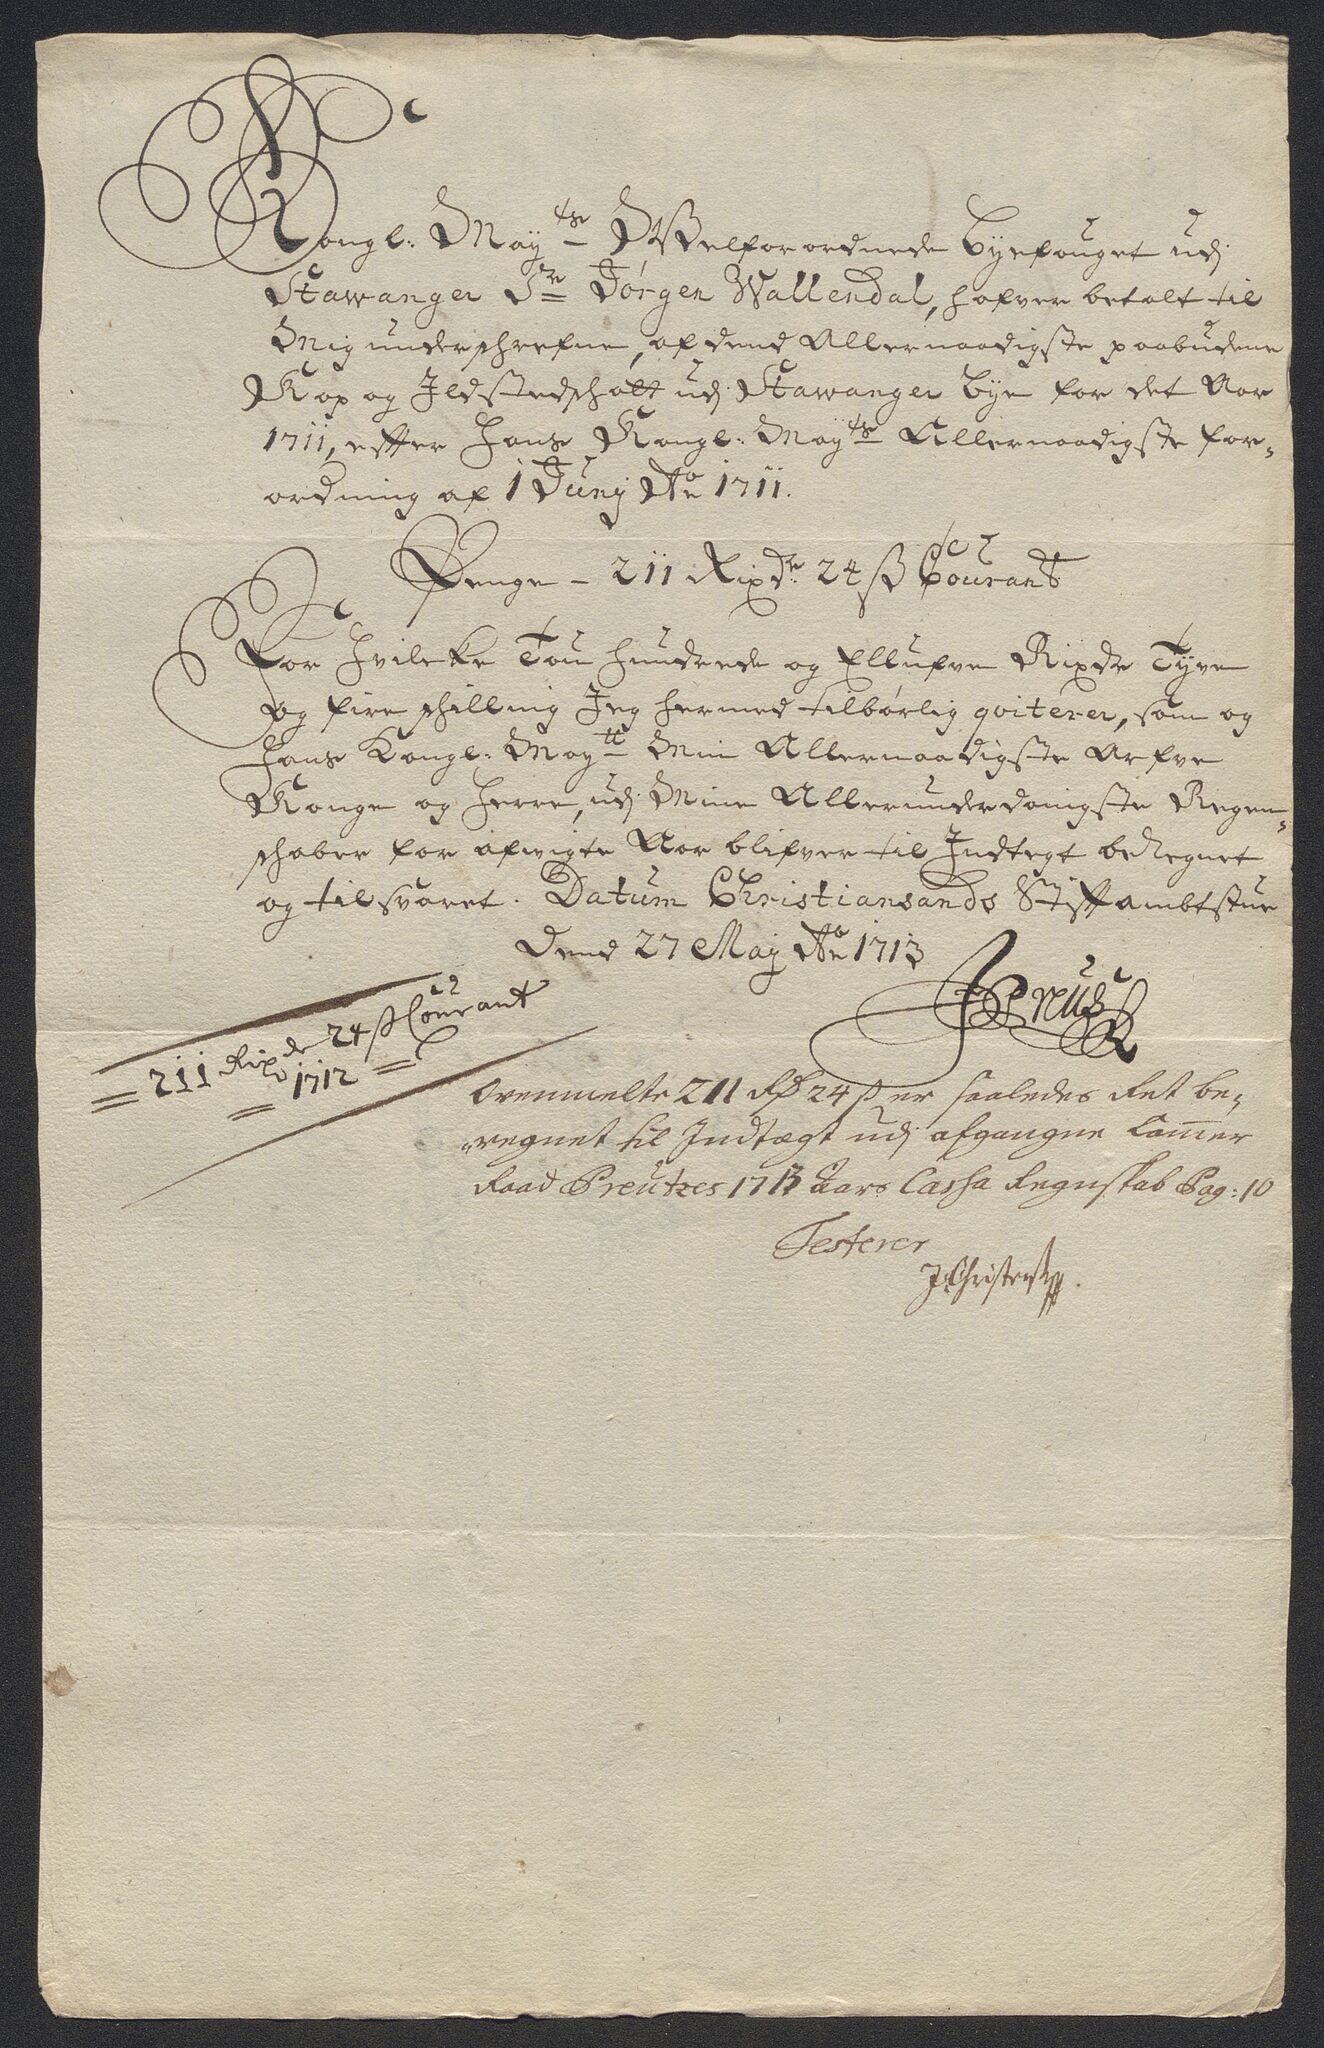 Kongl: May:ts Velforordnede Byefouget udj
Stawanger Sr Jørgen Wallendal, hafver betalt til
Mig underschrefne, af dend Allernaadigste paabudene
Kop og Ildstedschatt udj Stawanger Bye for det Aar
1711, effter Hans Kongl: May:ts Allernaadigste for-
ordning af 1 Junj Ao 1711.
Penge - 211 Rixdr 24 ß Courant
For Hvilcke Tou Hundrede og Ellufve Rixdr Tyve
og fire schilling Jeg hermed tilbørlig qviterer, som og
Hans Kongl: Maytt Min Allernaadigste Arfve
Konge og Herre, udj Mine Allerunderdanigste Regen-
schaber for afwigte Aar blifver til Indtegt beRegnet
og tilsvaret. Datum Christiansands Stiffambtstue
Dend 27 Maij Ao 1713
Preüs
= 211 Rixde 24 ß Courant
= 1712 =
Ovenmelte 211 Rd 24 ß er saaledes Ret be-
regnet til Indtægt udj afgangne Camer
Raad Preutzes 1713 Aars Cassa Regnskab Pag: 10
Testerer
J Christensen